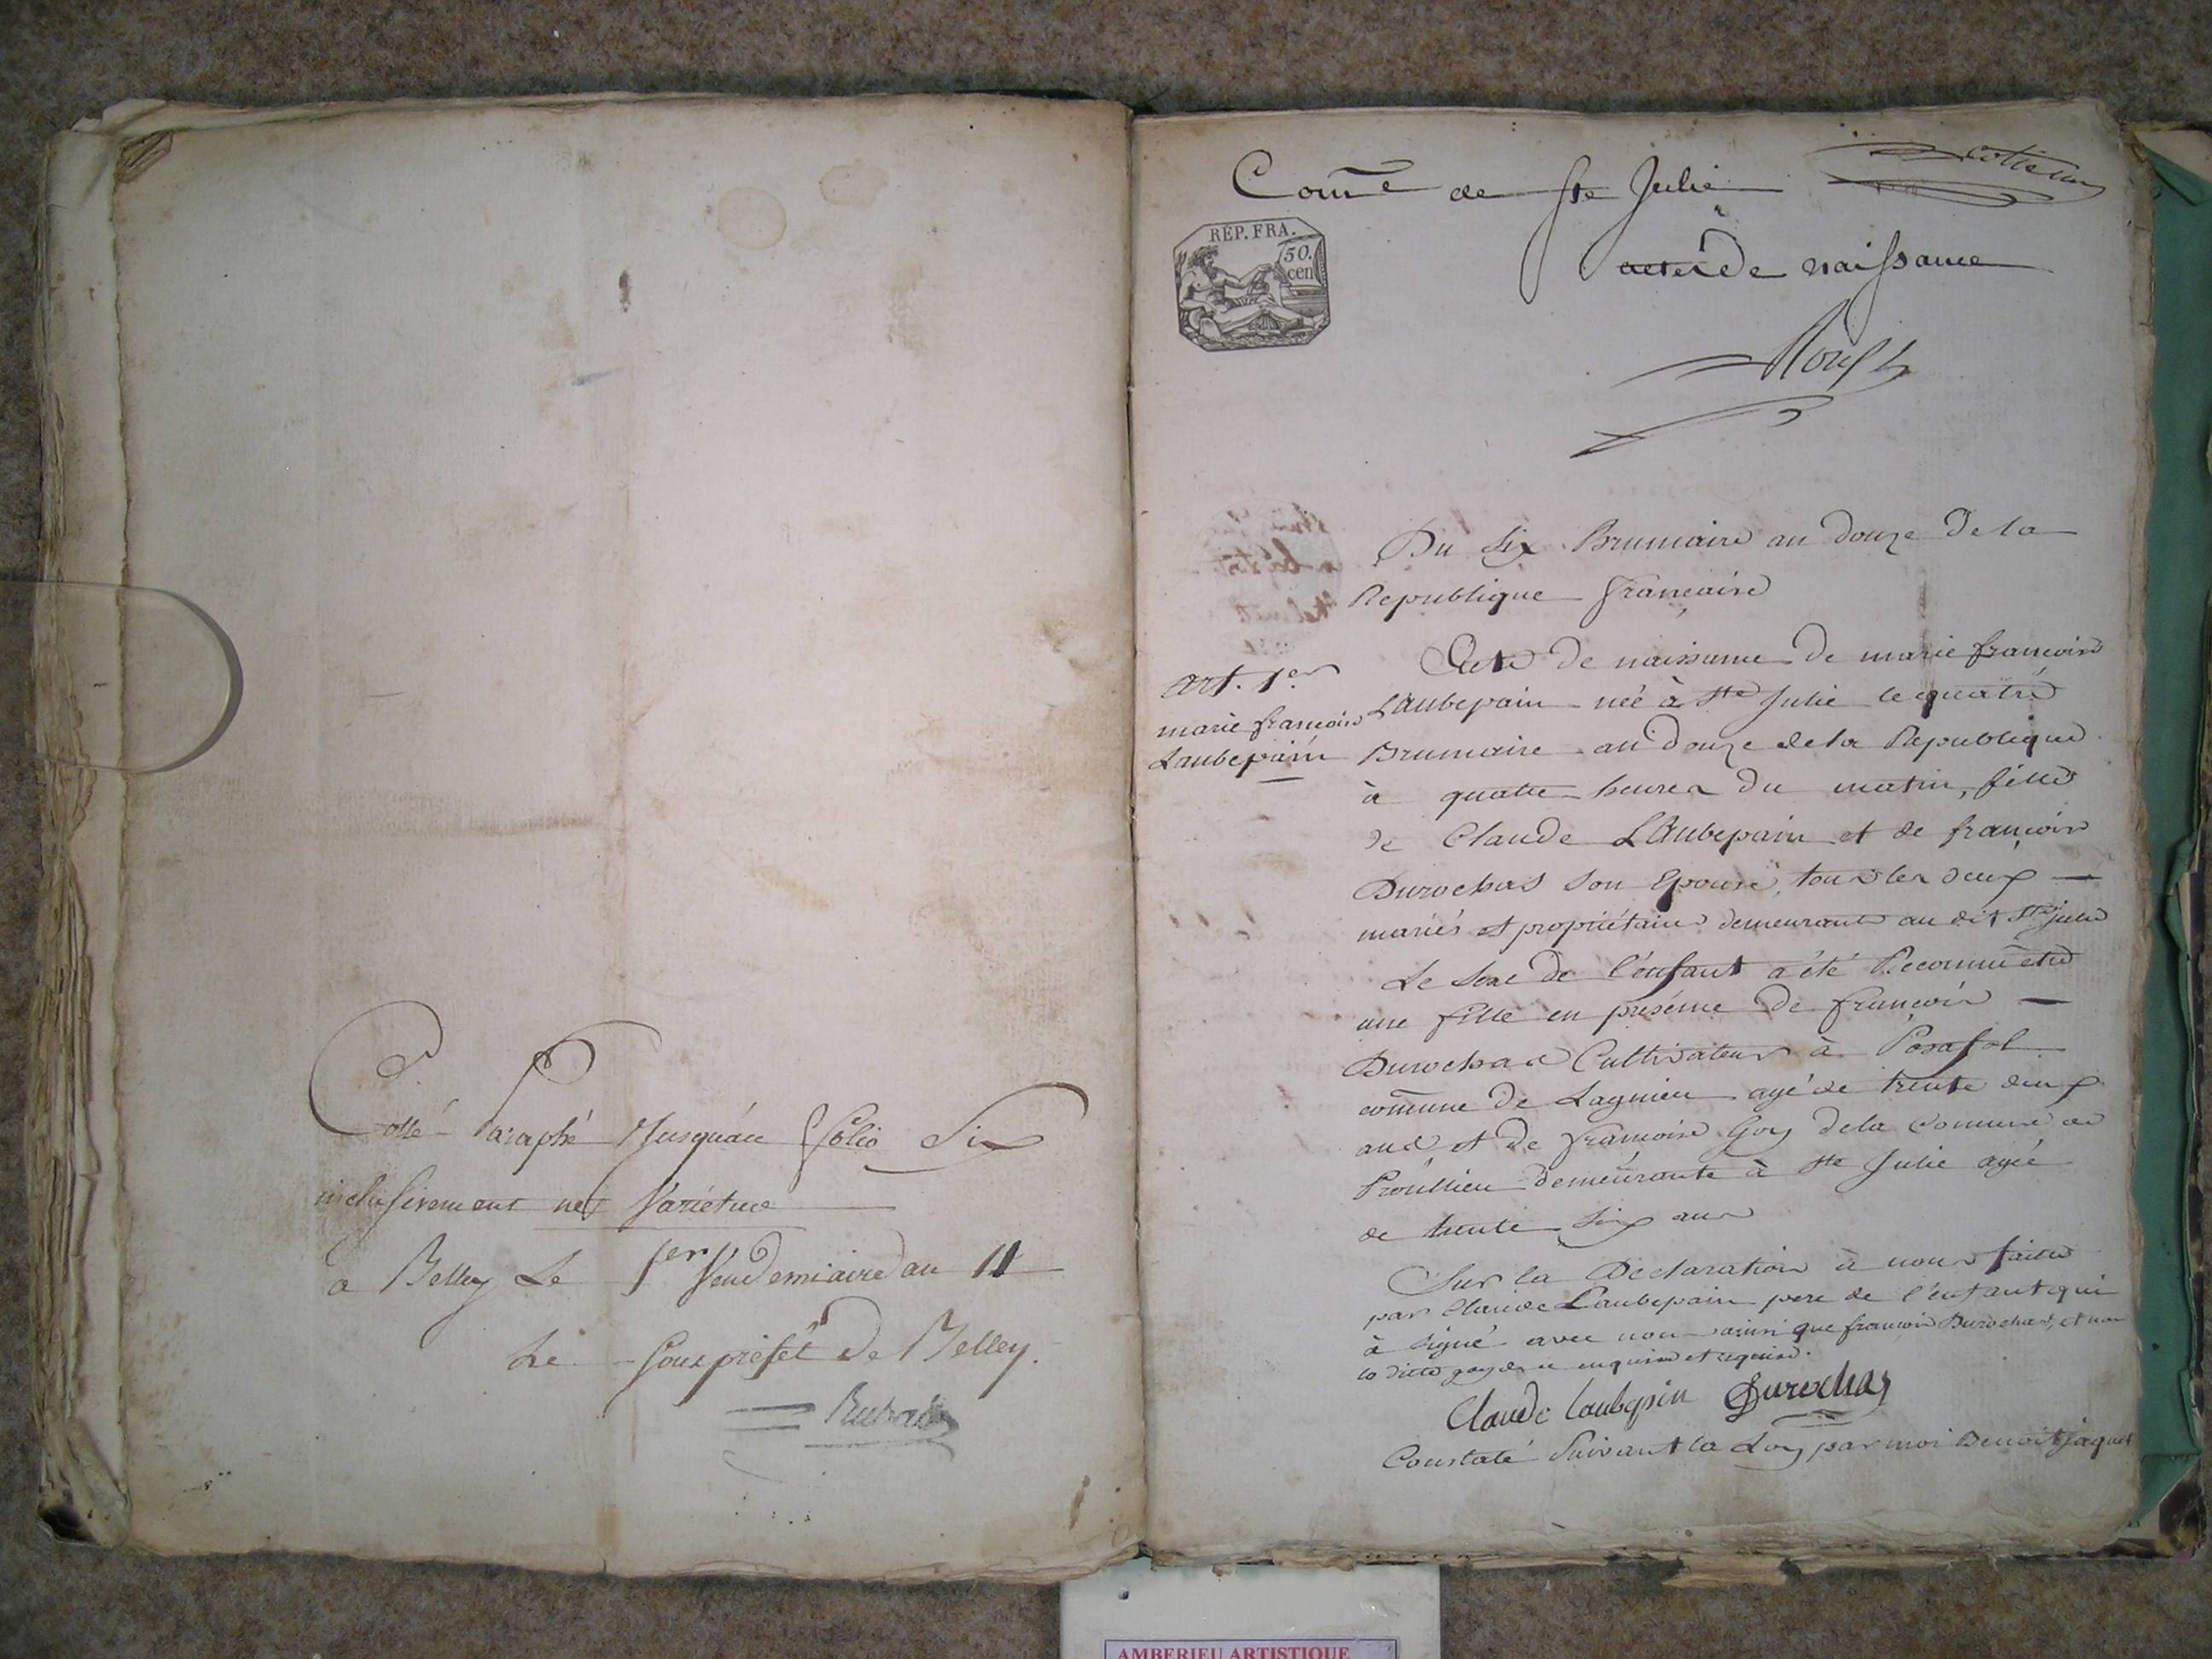 Cotté Paraphé Jusquáu folio Six
inclusivement ne Varietur
a Belley Le 1er Vendemiaire an 11
Le Souspréfét de Belley.
Com̃e de Ste Julie
actes de naissance
REP. FRA.
50.
cen
Du six Brumaire an douze de la
Republique française
Art. 1er
marie françoise
Laubepain
Acte de naissance de marie françoise
LAubepain née à Ste Julie le quatre
Brumaire an douze de la Republique
à quatre heures du matin, fille
de Claude LAubepain et de françoise
Durochas son Epouse, tous les deux
mariés et propriétaires demeurants au dit Ste Julie
Le sexe de l'énfant a été Reconnu être
une fille en présence de françois
Durochas Cultivateur à Posafol
com̃une de Lagnieu agé de trente deux
ans et de françoise Goy de la Commune de
Proullieu demeurante à Ste Julie agée
de trente six ans
Sur la Déclaration à nous faite
par Claude Laubepain pere de l'énfant qui
à signé avec nous ainsi que françois Durochas, et non
la ditte goy de ce enquise et requise.
Claude laubepin Durochas
Constaté Suivant la Loy par moi Benoit jaquet
AMBERIEU ARTISTIQUE